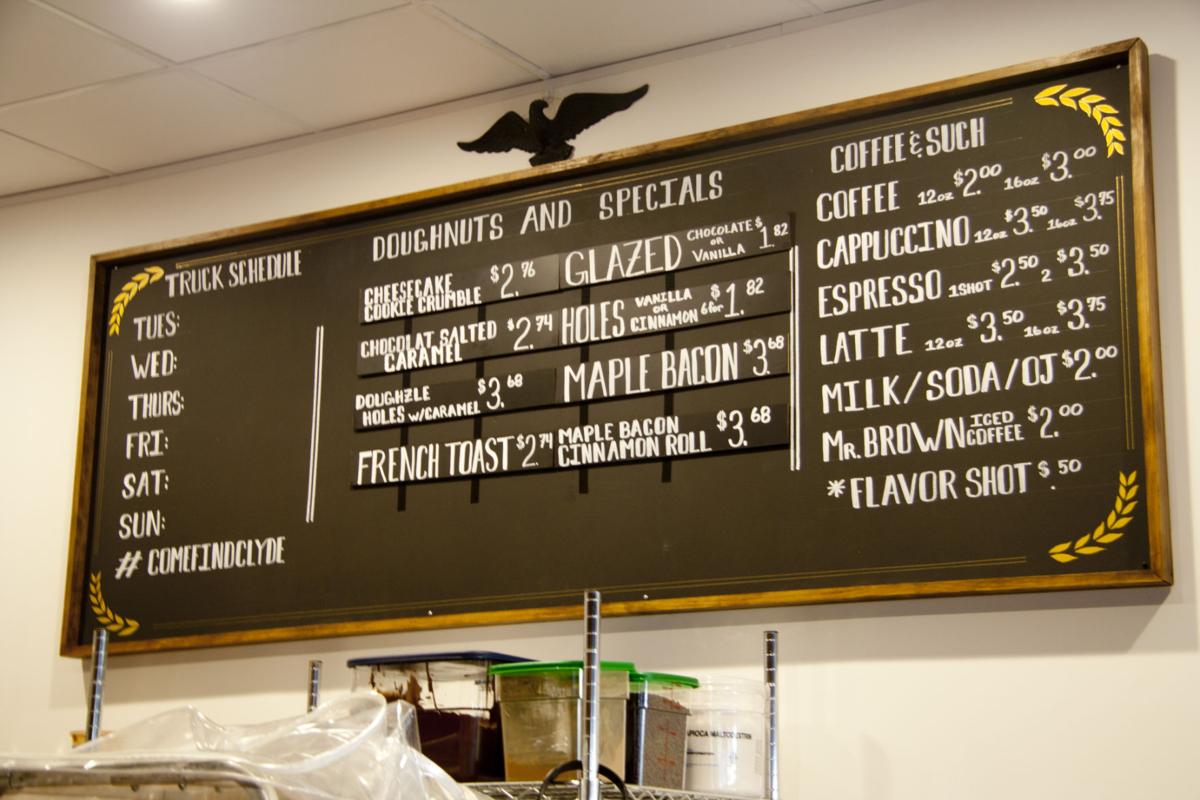 TRUCK SCHEDULE
TUES:
WED:
THURS:
FRI:
SAT:
SUN:
# COMEFINDCLYDE
DOUGHNUTS AND SPECIALS
CHEESECAKE
COOKIE CRUMBLE $2.76
CHOCOLAT SALTED
CARAMEL $2.74
DOUGHZLE
HOLES W/CARAMEL $3.68
FRENCH TOAST $2.74
GLAZED CHOCOLATE OR VANILLA $1.82
HOLES VANILLA OR CINNAMON 6 for $1.82
MAPLE BACON $3.68
MAPLE BACON
CINNAMON ROLL $3.68
COFFEE & SUCH
COFFEE 12oz $2.00 16oz $3.00
CAPPUCCINO 12oz $3.50 16oz $3.75
ESPRESSO 1SHOT $2.50 2 $3.50
LATTE 12oz $3.50 16oz $3.75
MILK/SODA/OJ $2.00
MR. BROWN ICED COFFEE $2.00
*FLAVOR SHOT $.50